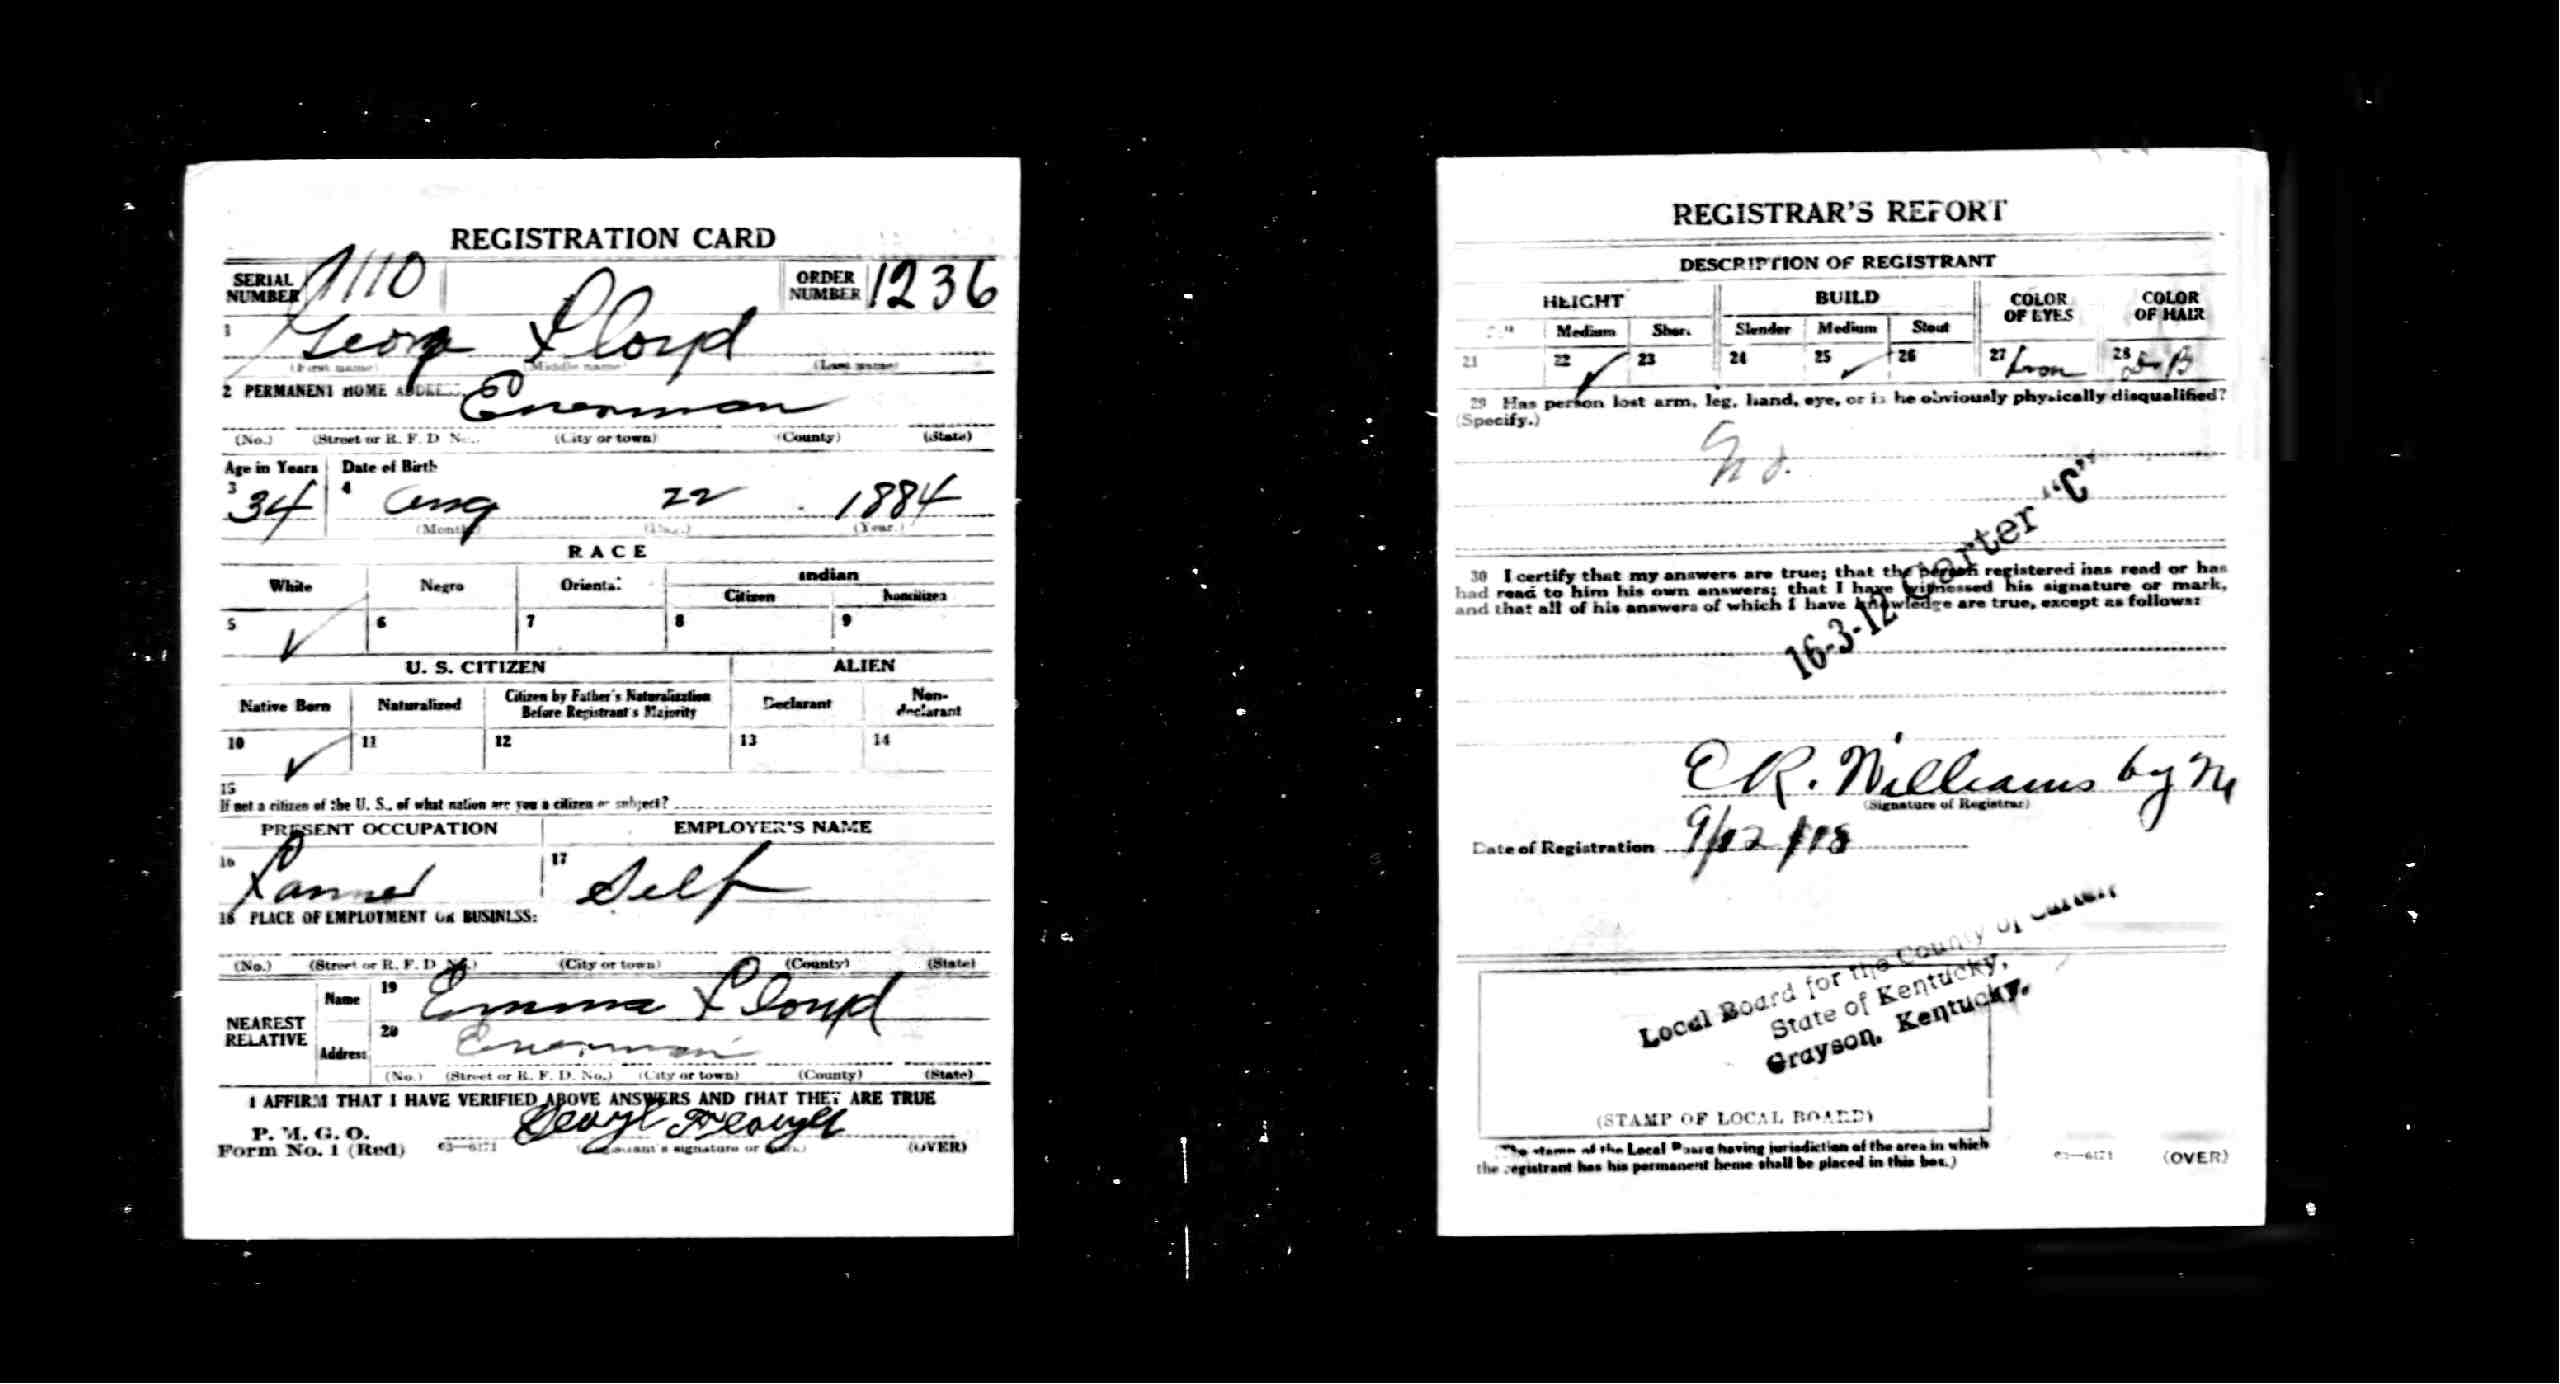 REGISTRATION CARD
SERIAL NUMBER 1110 ORDER NUMBER 1236
1 Georg Floyd
(First name) (Middle name) (Last name)
2 PERMANENT HOME ADDRESS:
(No.) (Street or R. F. D. No.) (City or town) (County) (State)
Age in Years Date of Birth
3 34 4 Aug 22 1884
(Month) (Day.) (Year.)
RACE
White Negro Oriental Indian
Citizen Noncitizen
5 ✓ 6 7 8 9
U. S. CITIZEN ALIEN
Native Born Naturalized Citizen by Father's Naturalization Before Registrant's Majority Declarant Non-declarant
10 ✓ 11 12 13 14
15
If not a citizen of the U. S., of what nation are you a citizen or subject?
PRESENT OCCUPATION EMPLOYER'S NAME
16 Farmer 17 Self
18 PLACE OF EMPLOYMENT OR BUSINESS:
(No.) (Street or R. F. D. No.) (City or town) (County) (State)
NEAREST RELATIVE Name 19 Emma Floyd
Address 20
(No.) (Street or R. F. D. No.) (City or town) (County) (State)
I AFFIRM THAT I HAVE VERIFIED ABOVE ANSWERS AND THAT THEY ARE TRUE
P. M. G. O.
Form No. 1 (Red) 03—6171 (Registrant's signature or mark) (OVER)
REGISTRAR'S REPORT
DESCRIPTION OF REGISTRANT
HEIGHT BUILD COLOR OF EYES COLOR OF HAIR
Medium Short Slender Medium Stout
21 22 ✓ 23 24 25 ✓ 26 27 28
29 Has person lost arm, leg, hand, eye, or is he obviously physically disqualified?
(Specify.)
No.
16-3-12 Carter "C"
30 I certify that my answers are true; that the person registered has read or has
had read to him his own answers; that I have witnessed his signature or mark,
and that all of his answers of which I have knowledge are true, except as follows:
C R. Williams by
(Signature of Registrar)
Date of Registration 9/12/18
Local Board for the County of Carter
State of Kentucky,
Grayson, Kentucky.
(STAMP OF LOCAL BOARD)
(The stamp of the Local Board having jurisdiction of the area in which
the registrant has his permanent home shall be placed in this box.)
03—6171 (OVER)